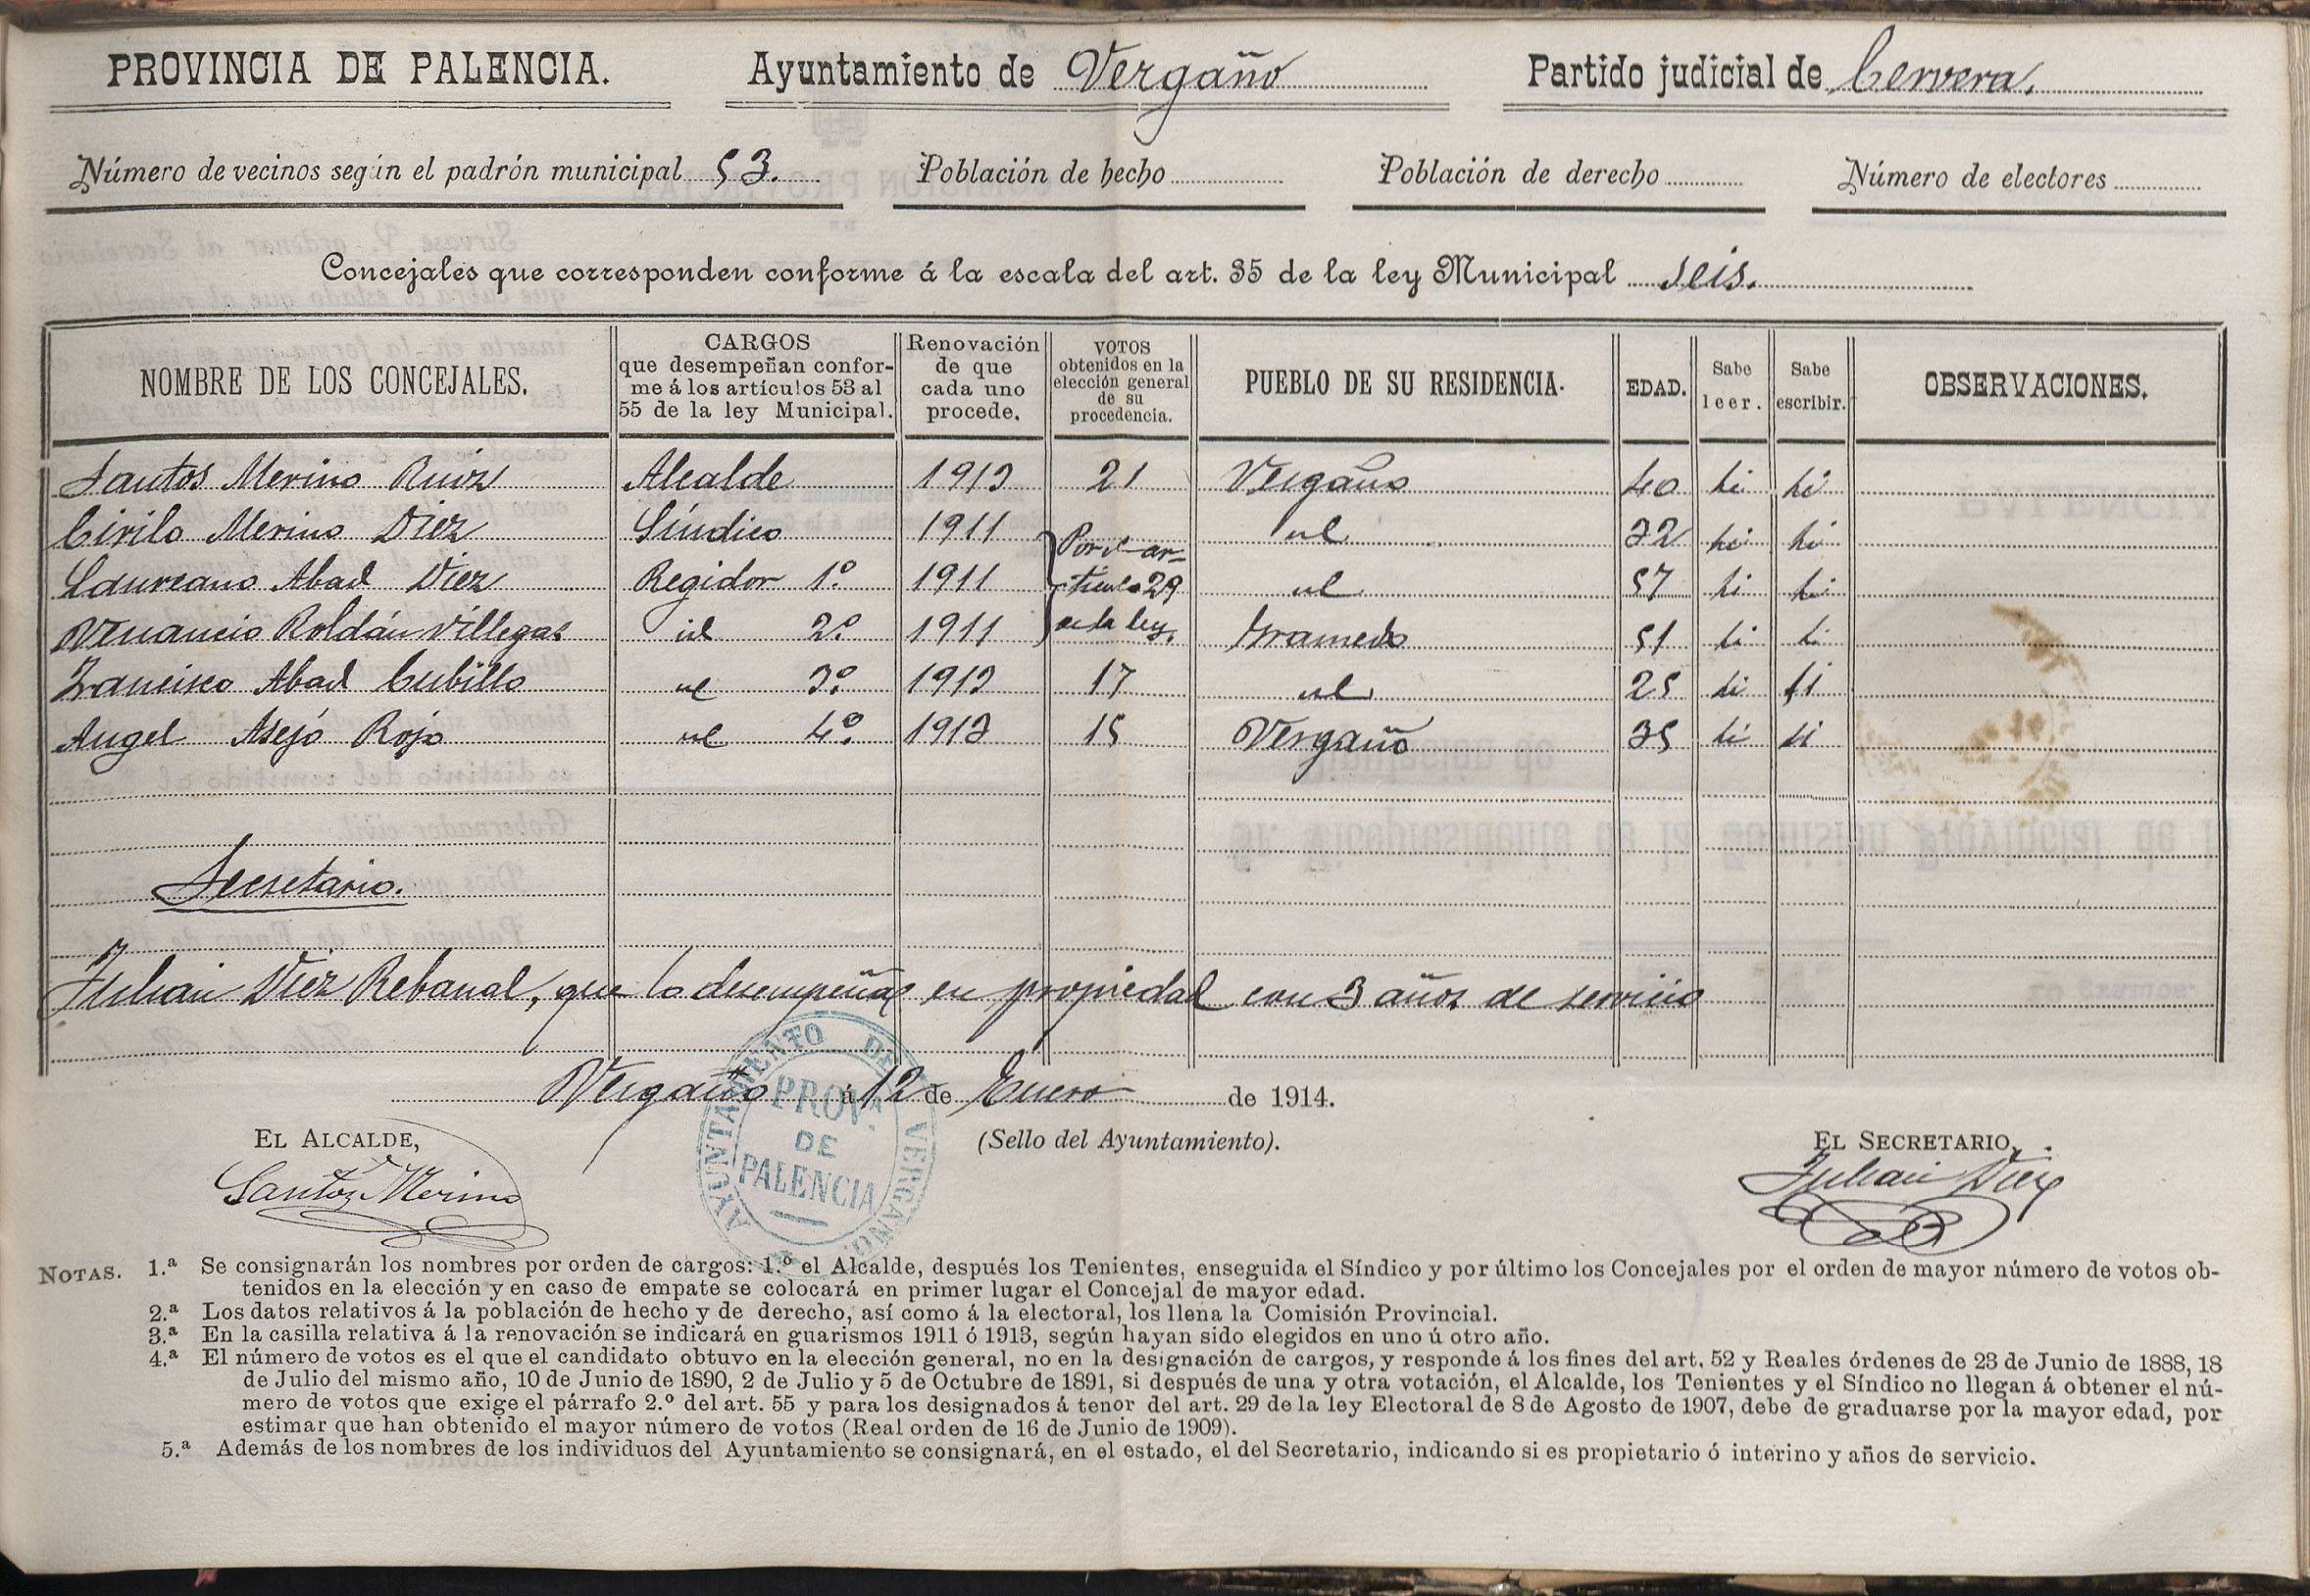 PROVINCIA DE PALENCIA. Ayuntamiento de Vergaño Partido judicial de Cervera.
Número de vecinos según el padrón municipal 53. Población de hecho Población de derecho Número de electores
Concejales que corresponden conforme á la escala del art. 35 de la ley Municipal seis.
NOMBRE DE LOS CONCEJALES.
CARGOS
que desempeñan confor-
me á los artículos 53 al
55 de la ley Municipal.
Renovación
de que
cada uno
procede.
VOTOS
obtenidos en la
elección general
de su
procedencia.
PUEBLO DE SU RESIDENCIA.
EDAD.
Sabe
leer.
Sabe
escribir.
OBSERVACIONES.
Santos Merino Ruiz Alcalde 1913 21 Vergaño 40 si si
Cirilo Merino Diez Síndico 1911 Por el ar- id 32 si si
Laureano Abad Diez Regidor 1º 1911 tículo 29 id 57 si si
Venancio Roldán Villegas id 2º 1911 de la ley. Gramedo 51 si si
Francisco Abad Cubillo id 3º 1913 17 id 25 si si
Angel Asejo Rojo id 4º 1913 15 Vergaño 35 si si
Secretario.
Julian Diez Rebanal, que lo desempeña en propiedad con 3 años de servicio
Vergaño á 12 de Enero de 1914.
AYUNTAMIENTO DE VERGAÑO.
PROV.ª
DE
PALENCIA
EL ALCALDE, (Sello del Ayuntamiento). EL SECRETARIO,
Santos Merino Julian Diez
NOTAS. 1.ª Se consignarán los nombres por orden de cargos: 1.º el Alcalde, después los Tenientes, enseguida el Síndico y por último los Concejales por el orden de mayor número de votos ob-
tenidos en la elección y en caso de empate se colocará en primer lugar el Concejal de mayor edad.
2.ª Los datos relativos á la población de hecho y de derecho, así como á la electoral, los llena la Comisión Provincial.
3.ª En la casilla relativa á la renovación se indicará en guarismos 1911 ó 1913, según hayan sido elegidos en uno ú otro año.
4.ª El número de votos es el que el candidato obtuvo en la elección general, no en la designación de cargos, y responde á los fines del art. 52 y Reales órdenes de 23 de Junio de 1888, 18
de Julio del mismo año, 10 de Junio de 1890, 2 de Julio y 5 de Octubre de 1891, si después de una y otra votación, el Alcalde, los Tenientes y el Síndico no llegan á obtener el nú-
mero de votos que exige el párrafo 2.º del art. 55 y para los designados á tenor del art. 29 de la ley Electoral de 8 de Agosto de 1907, debe de graduarse por la mayor edad, por
estimar que han obtenido el mayor número de votos (Real orden de 16 de Junio de 1909).
5.ª Además de los nombres de los individuos del Ayuntamiento se consignará, en el estado, el del Secretario, indicando si es propietario ó interino y años de servicio.